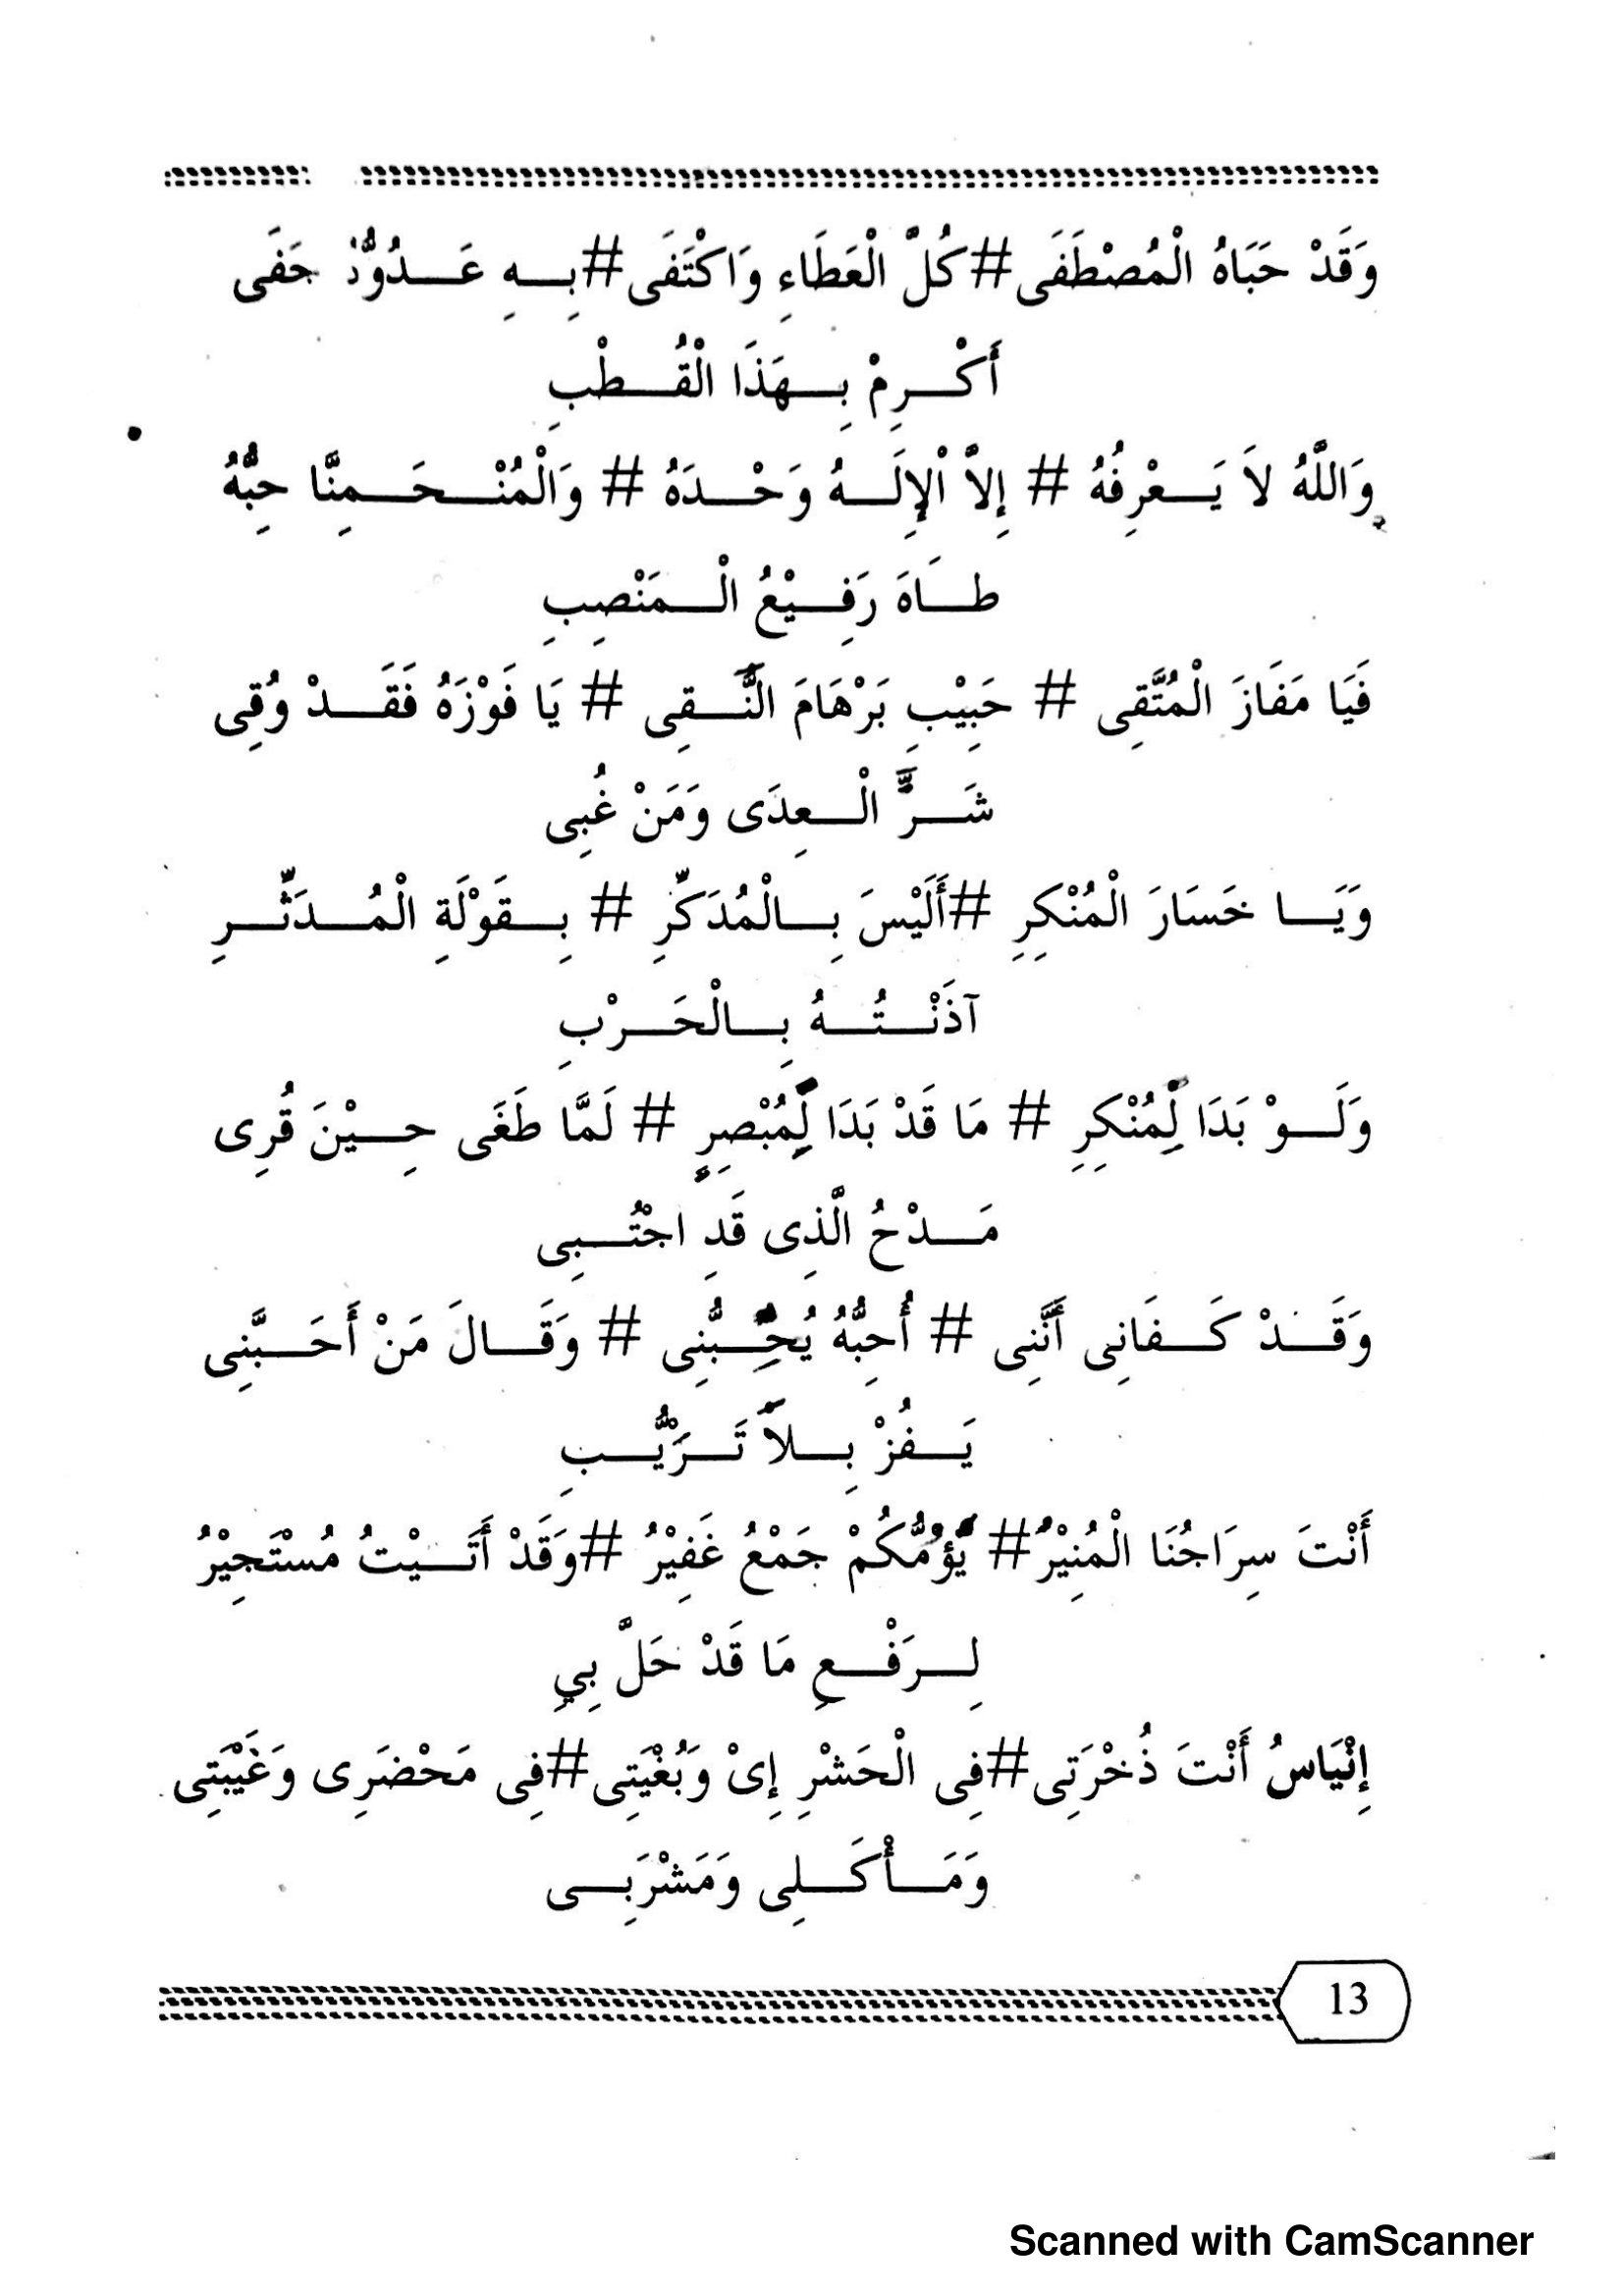 وَقَدْ حَبَاهُ الْمُصْطَفَى#كُلَّ الْعَطَاءِ وَاكْتَفَى#بِهِ عَدُوٌّ جَفَى
أَكْرِمْ بِهَذَا الْقُطْبِ
وَاللَّهُ لاَ يَعْرِفُهُ # إِلاَّ اْلإِلَهُ وَحْدَهُ # وَالْمُنْحَمِنَّا حِبُّهُ
طَاهَ رَفِيْعُ الْمَنْصِبِ
فَيَا مَفَازَ الْمُتَّقِى # حَبِيْبِ بَرْهَامَ النَّقِى # يَا فَوْزَهُ فَقَدْ وُقِى
شَرَّ الْعِدَى وَمَنْ غُبِى
وَيَا خَسَارَ الْمُنْكِرِ #أَلَيْسَ بِالْمُدَكِّرِ # بِقَوْلَةِ الْمُدَثِّرِ
آذَنْتُهُ بِالْحَرْبِ
وَلَوْ بَدَا لِمُنْكِرِ # مَا قَدْ بَدَا لِمُبْصِرٍ # لَمَّا طَغَى حِيْنَ قُرِى
مَدْحُ الَّذِى قَدِ اجْتُبِى
وَقَدْ كَفَانِى أَنَّنِى # أُحِبُّهُ يُحِبُّنِى # وَقَالَ مَنْ أَحَبَّنِى
يَفُزْ بِلاَ تَرَيُّبِ
أَنْتَ سِرَاجُنَا الْمُنِيْرُ# يَؤُمُّكُمْ جَمْعُ غَفِيْرُ #وَقَدْ أَتَيْتُ مُسْتَجِيْرُ
لِرَفْعِ مَا قَدْ حَلَّ بِي
إِنْيَاسُ أَنْتَ ذُخْرَتِى#فِى الْحَشْرِ إِىْ وَبُغْيَتِى#فِى مَحْضَرِى وَغَيْبَتِى
وَمَأْكَلِى وَمَشْرَبِى
13
Scanned with CamScanner